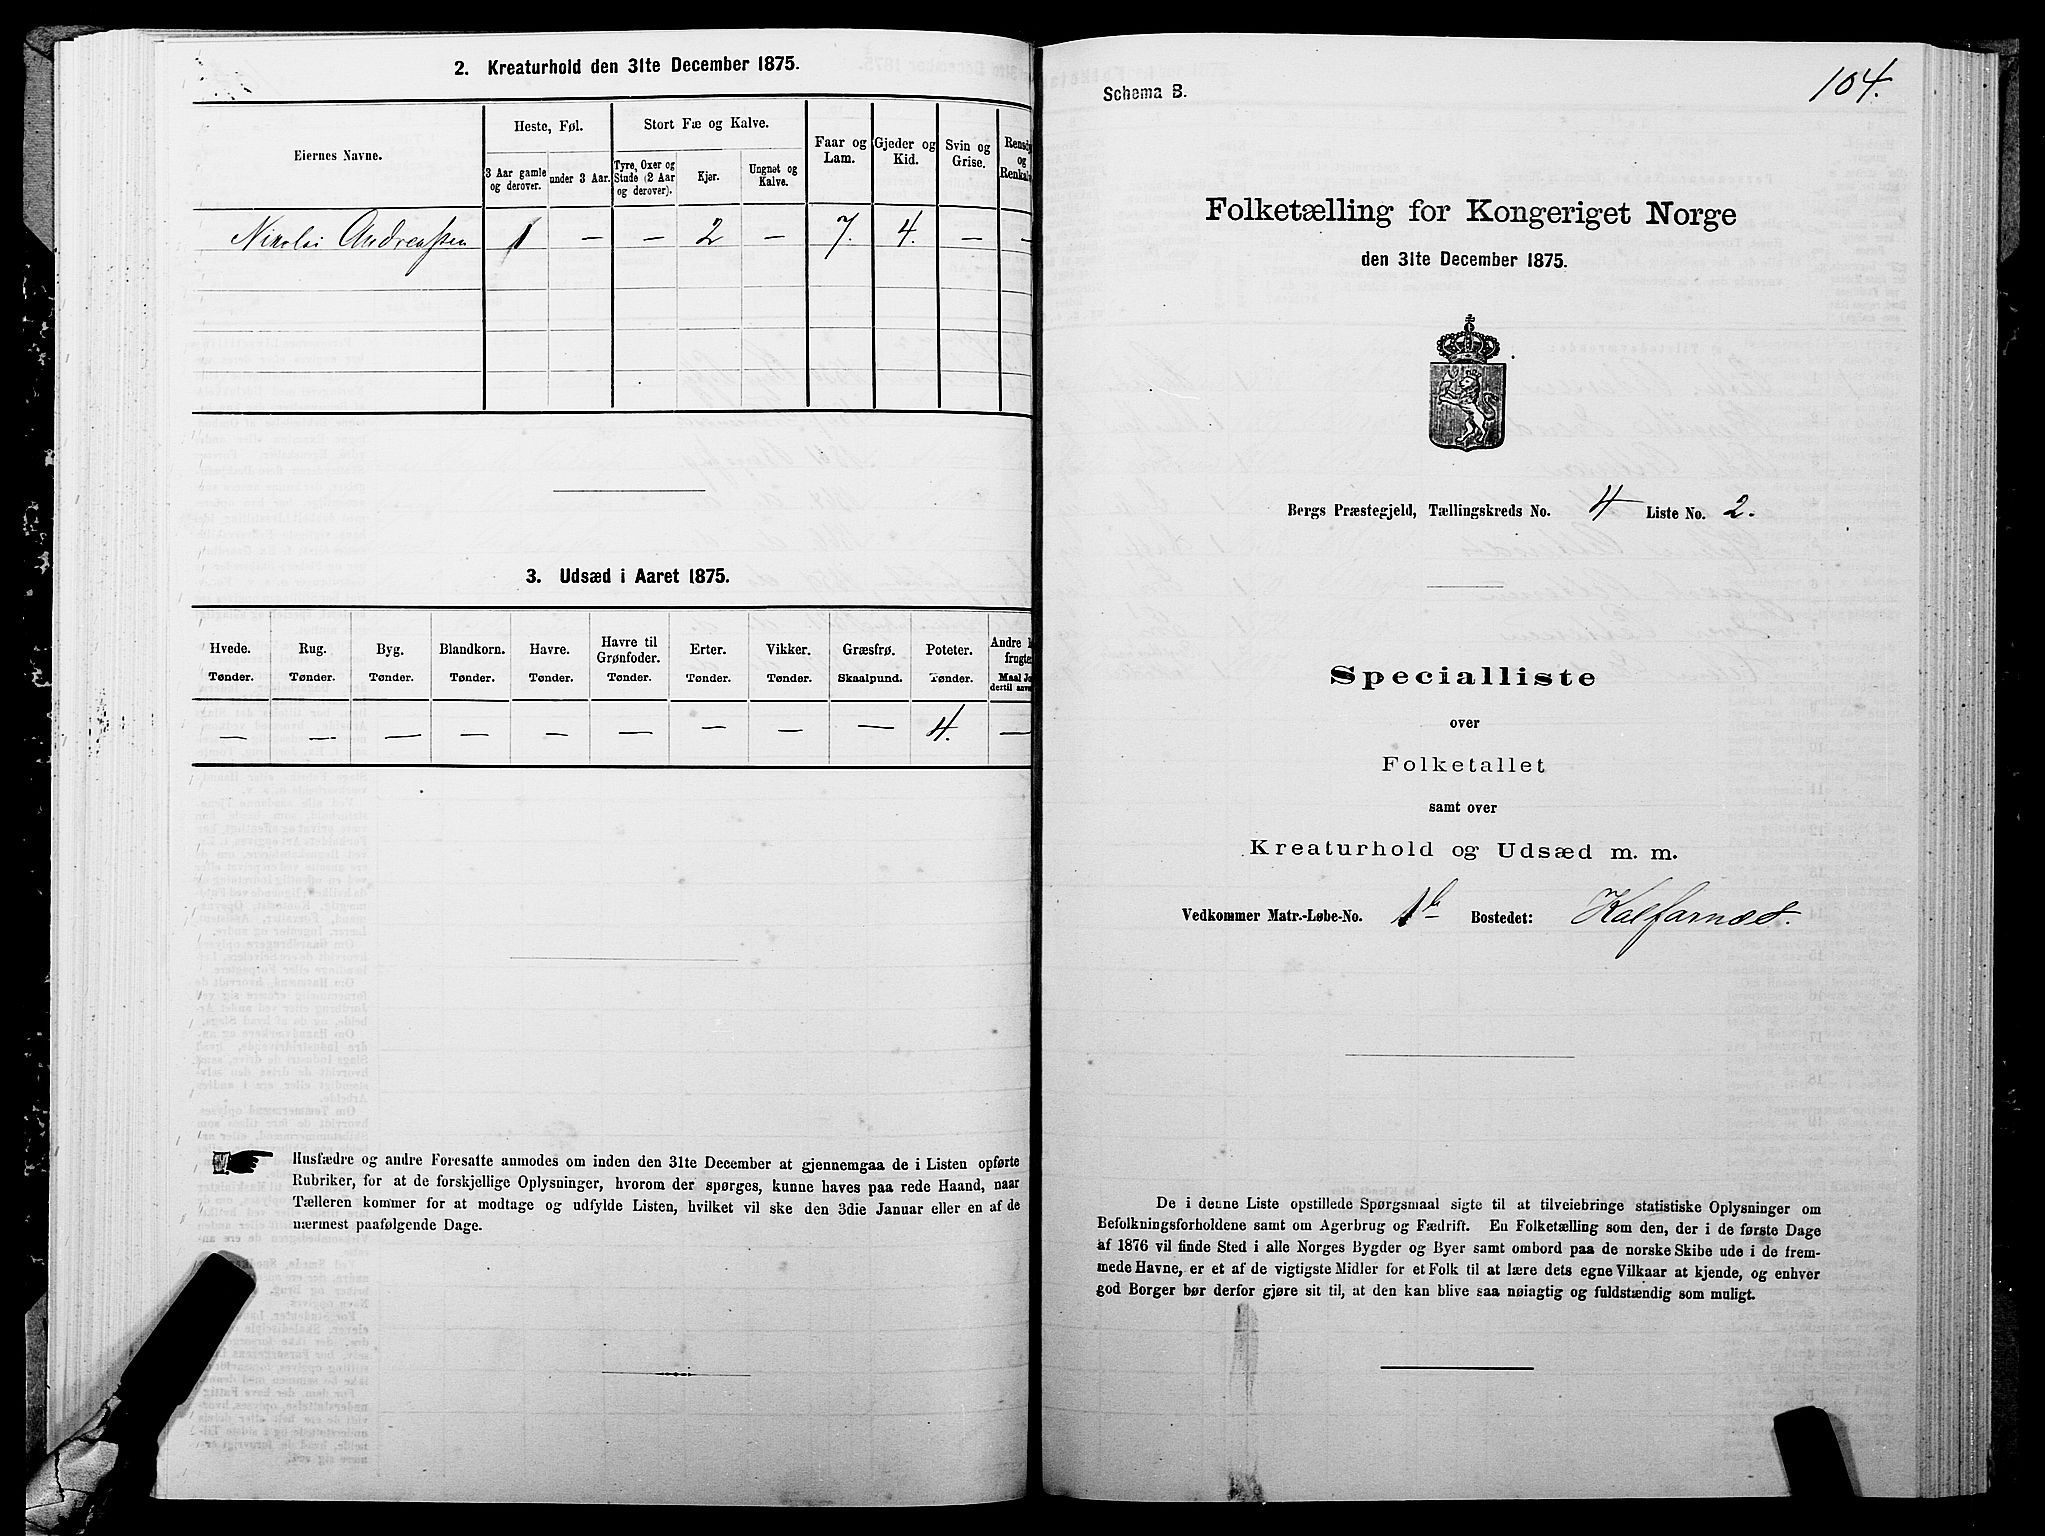 2. Kreaturhold den 31te December 1875.
Eiernes Navne.
Heste, Føl.
Stort Fæ og Kalve.
Faar og
Lam.
Gjeder og
Kid.
Svin og
Grise.
Rensdy
og
Renkalv
3 Aar gamle
og derover.
under 3 Aar.
Tyre, Oxer og
Stude (2 Aar
og derover).
Kjør.
Ungnøt og
Kalve.
Nikolai Andreassen 1 — — 2 — 7. 4. — —
3. Udsæd i Aaret 1875.
Hvede.
Tønder.
Rug.
Tønder.
Byg.
Tønder.
Blandkorn.
Tønder.
Havre.
Tønder.
Havre til
Grønfoder.
Tønder.
Erter.
Tønder.
Vikker.
Tønder.
Græsfrø.
Skaalpund.
Poteter.
Tønder.
Andre
frugte
Maal Jo
dertil anv
— — — — — — — — — 4. —
Husfædre og andre Foresatte anmodes om inden den 31te December at gjennemgaa de i Listen opførte
Rubriker, for at de forskjellige Oplysninger, hvorom der spørges, kunne haves paa rede Haand, naar
Tælleren kommer for at modtage og udfylde Listen, hvilket vil ske den 3die Januar eller en af de
nærmest paafølgende Dage.
104.
Schema B.
Folketælling for Kongeriget Norge
den 31te December 1875.
Bergs Præstegjeld, Tællingskreds No. 4 Liste No. 2.
Specialliste
over
Folketallet
samt over
Kreaturhold og Udsæd m. m.
Vedkommer Matr.-Løbe-No. 1b Bostedet: Kalfarnæs.
De i denne Liste opstillede Spørgsmaal sigte til at tilveiebringe statistiske Oplysninger om
Befolkningsforholdene samt om Agerbrug og Fædrift. En Folketælling som den, der i de første Dage
af 1876 vil finde Sted i alle Norges Bygder og Byer samt ombord paa de norske Skibe ude i de frem-
mede Havne, er et af de vigtigste Midler for et Folk til at lære dets egne Vilkaar at kjende, og enhver
god Borger bør derfor gjøre sit til, at den kan blive saa nøiagtig og fuldstændig som muligt.